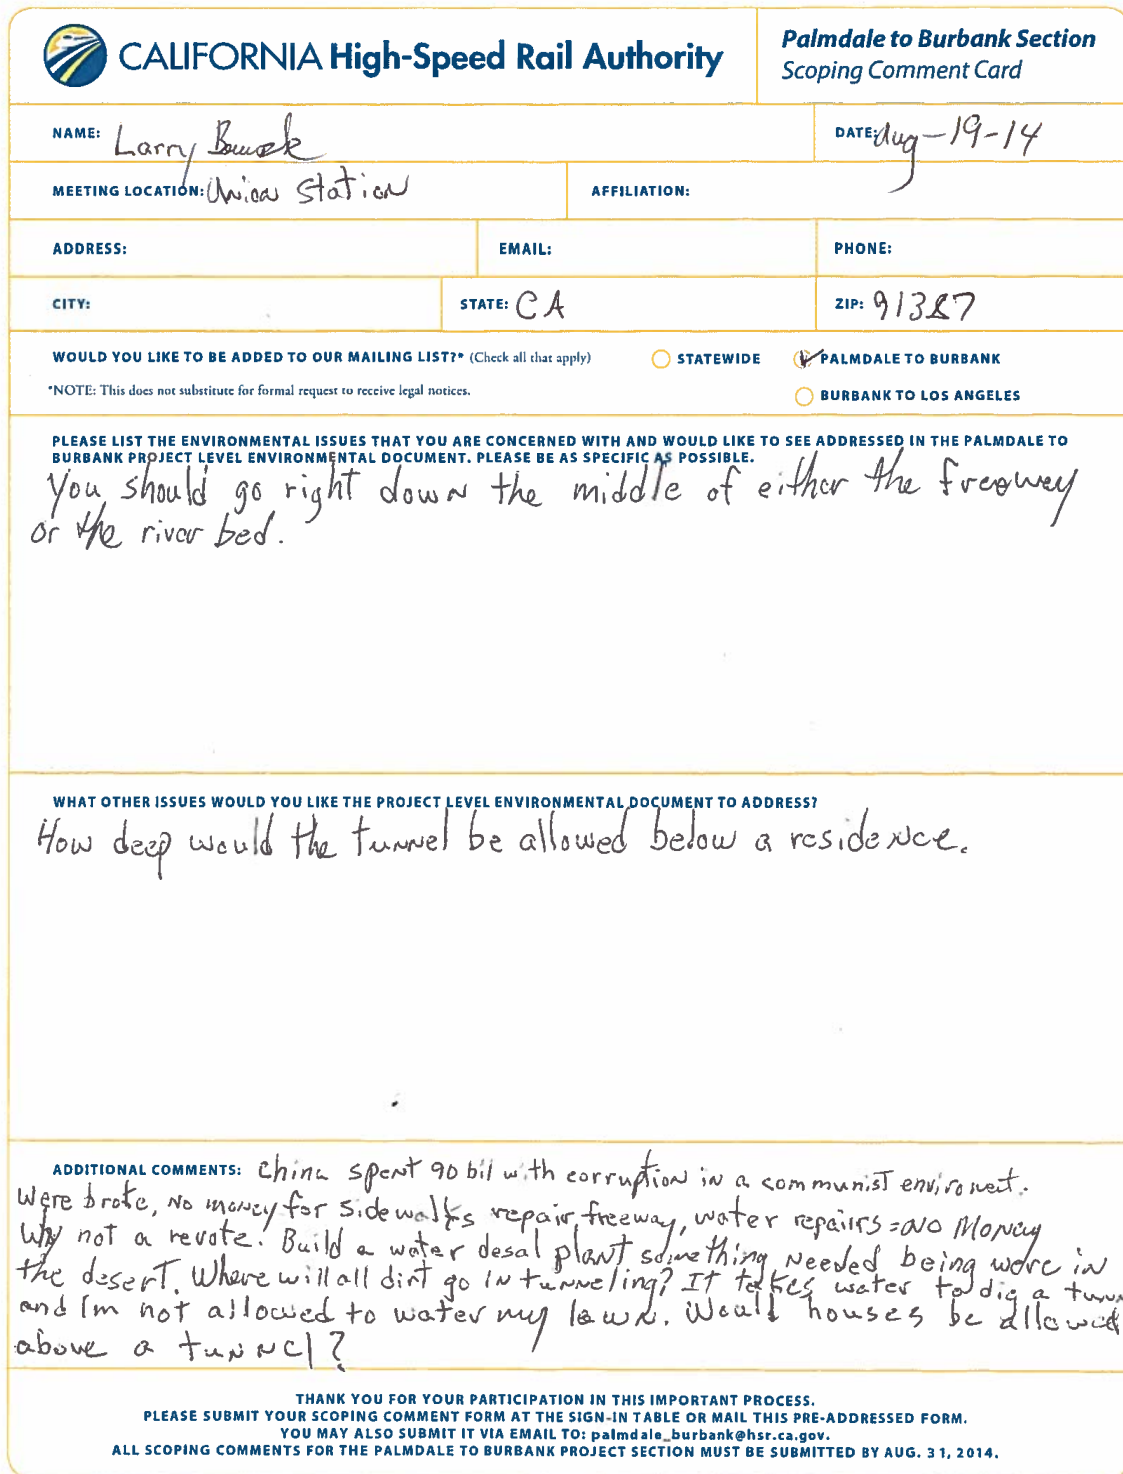 CALIFORNIA High-Speed Rail Authority
Palmdale to Burbank Section
Scoping Comment Card
NAME: Larry
DATE: Aug-19-14
MEETING LOCATION: Union Station
AFFILIATION:
ADDRESS:
EMAIL:
PHONE:
CITY:
STATE: CA
ZIP: 91387
WOULD YOU LIKE TO BE ADDED TO OUR MAILING LIST?* (Check all that apply)
STATEWIDE
PALMDALE TO BURBANK
*NOTE: This does not substitute for formal request to receive legal notices.
BURBANK TO LOS ANGELES
PLEASE LIST THE ENVIRONMENTAL ISSUES THAT YOU ARE CONCERNED WITH AND WOULD LIKE TO SEE ADDRESSED IN THE PALMDALE TO
BURBANK PROJECT LEVEL ENVIRONMENTAL DOCUMENT. PLEASE BE AS SPECIFIC AS POSSIBLE.
You should go right down the middle of either the freeway
or the river bed.
WHAT OTHER ISSUES WOULD YOU LIKE THE PROJECT LEVEL ENVIRONMENTAL DOCUMENT TO ADDRESS?
How deep would the tunnel be allowed below a residence.
ADDITIONAL COMMENTS: China spent 90 bil with corruption in a communist enviroment.
Were broke, no money for sidewalks repair, freeway, water repairs = NO Money
Why not a revote. Build a water desal plant something needed being were in
the desert. Where will all dirt go in tunneling? It takes water to dig a tunn
and I'm not allowed to water my lawn. Would houses be allowed
above a tunnel?
THANK YOU FOR YOUR PARTICIPATION IN THIS IMPORTANT PROCESS.
PLEASE SUBMIT YOUR SCOPING COMMENT FORM AT THE SIGN-IN TABLE OR MAIL THIS PRE-ADDRESSED FORM.
YOU MAY ALSO SUBMIT IT VIA EMAIL TO: palmdale_burbank@hsr.ca.gov.
ALL SCOPING COMMENTS FOR THE PALMDALE TO BURBANK PROJECT SECTION MUST BE SUBMITTED BY AUG. 31, 2014.